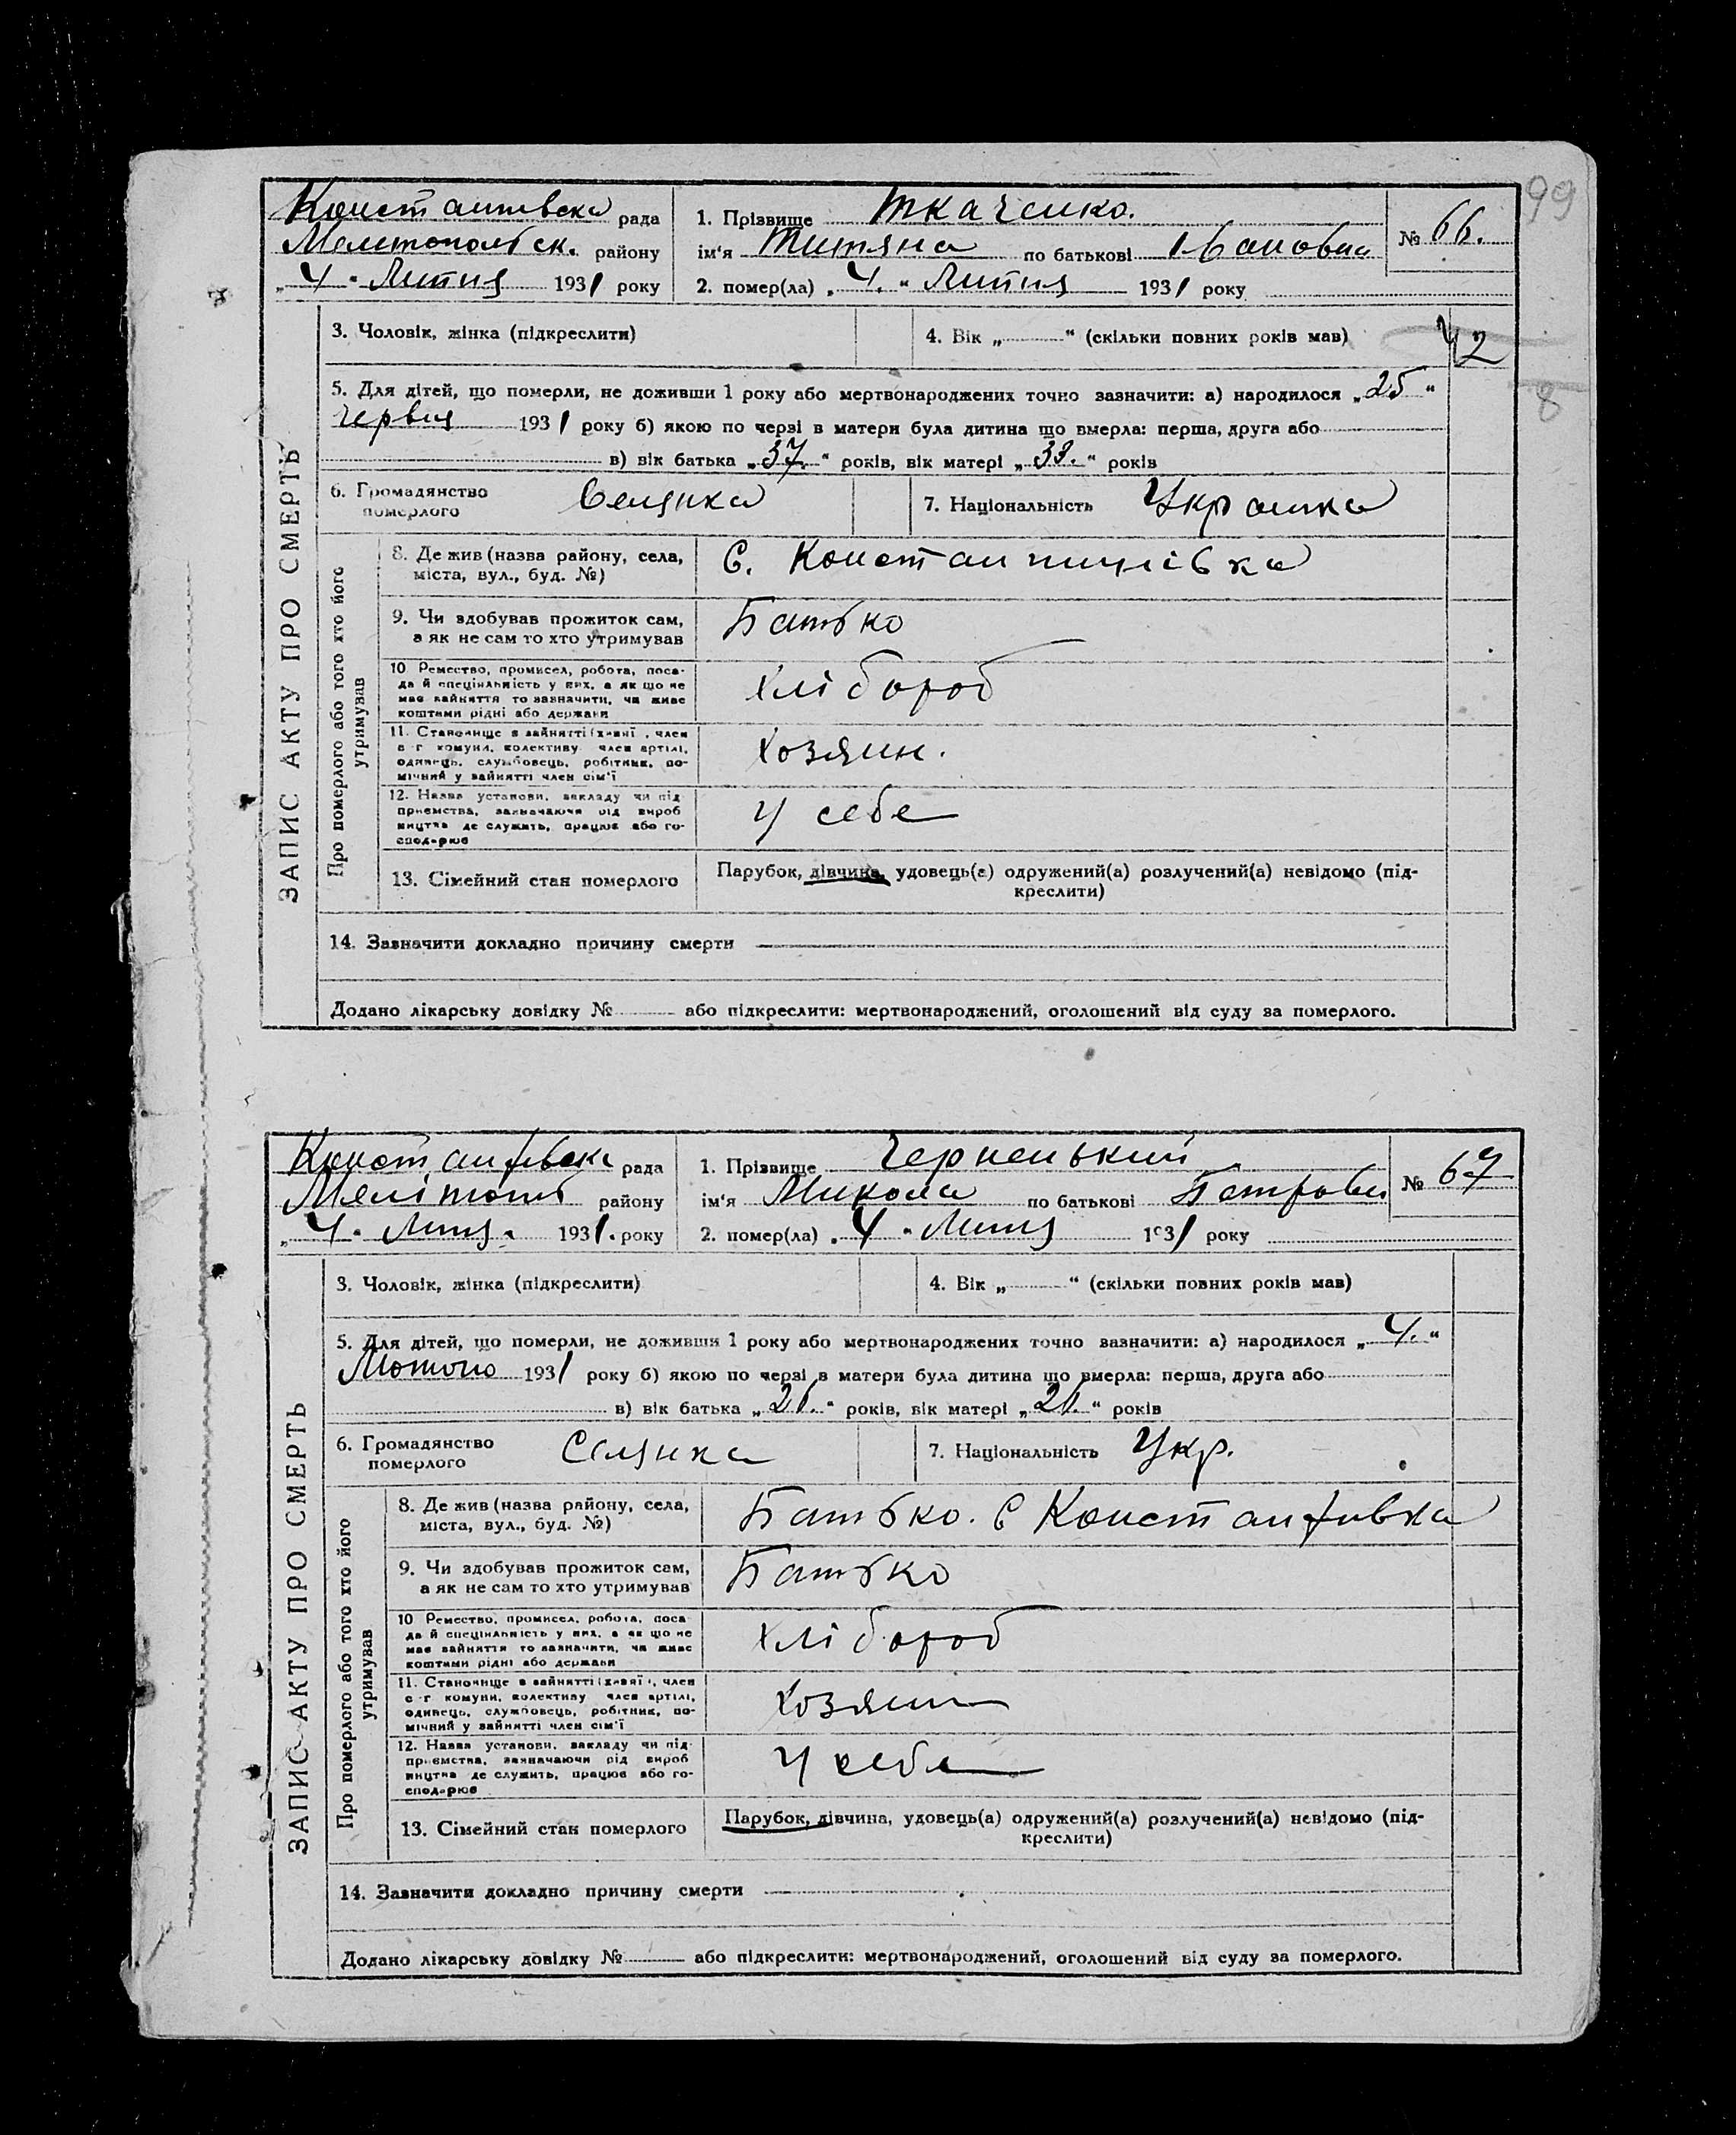 99
Констант антівска рада
1. Прізвище Ткаченко.
№ 66.
Мелітопольск. району
ім'я Титяна по батькові Івановна
„ 4 " Липня 1931 року
2. помер(ла) „ 4. " Липня 1931 року
ЗАПИС АКТУ ПРО СМЕРТЬ
3. Чоловік, жінка (підкреслити)
4. Вік „ " (скільки повних років мав)
42
8
5. Для дітей, що померли, не доживши 1 року або мертвонароджених точно зазначити: а) народилося „ 25 "
Червня 1931 року б) якою по черзі в матери була дитина що вмерла: перша, друга або
в) вік батька „ 37. " років, вік матері „ 33. " років
6. Громадянство
померлого
Селянка
7. Національність Українка
Про померлого або того хто його
утримував
8. Де жив (назва району, села,
міста, вул., буд. №)
С. Константинівка
9. Чи здобував прожиток сам,
а як не сам то хто утримував
Батько
10 Ремество, промисел, робота, поса-
да й спеціяльність у них, а як що не
має зайняття то зазначити, чи живе
коштами рідні або держави
Хлібороб
11. Становище в зайнятті (хазяї, член
с-г комуни, колективу член артілі,
одинець, службовець, робітник, по-
мічний у зайнятті член сім'ї
Хозяин.
12. Назва установи, закладу чи під
приємства, зазначаючи рід вироб
ництва де служить, працює або го-
сподарює
У себе
13. Сімейний стан померлого
Парубок, дівчина, удовець(а) одружений(а) розлучений(а) невідомо (під-
креслити)
14. Зазначити докладно причину смерти
Додано лікарську довідку № або підкреслити: мертвонароджений, оголошений від суду за померлого.
Константівска рада
1. Прізвище Черненький
№ 67
Мелітопб району
ім'я Микола по батькові Петрович
„ 4 " Липня. 1931. року
2. помер(ла) „ 4 " Липня 1931 року
ЗАПИС АКТУ ПРО СМЕРТЬ
3. Чоловік, жінка (підкреслити)
4. Вік „ " (скільки повних років мав)
5. Для дітей, що померли, не доживши 1 року або мертвонароджених точно зазначити: а) народилося „ 4. "
Лютого 1931 року б) якою по черзі в матери була дитина що вмерла: перша, друга або
в) вік батька „ 21. " років, вік матері „ 21. " років
6. Громадянство
померлого
Селянка
7. Національність Укр.
Про померлого або того хто його
утримував
8. Де жив (назва району, села,
міста, вул., буд. №)
Батько. С Константивка
9. Чи здобував прожиток сам,
а як не сам то хто утримував
Батько
10 Ремество, промисел, робота, поса
да й спеціяльність у них, а як що не
має зайняття то зазначити, чи живе
коштами рідні або держави
Хлібороб
11. Становище в зайнятті (хазяї, член
с-г комуни, колективу член артілі,
одинець, службовець, робітник, по-
мічний у зайнятті член сім'ї
Хозяин
12. Назва установи, закладу чи під-
приємства, зазначаючи рід вироб
ництва де служить, працює або го-
сподарює
У себе
13. Сімейний стан померлого
Парубок, дівчина, удовець(а) одружений(а) розлучений(а) невідомо (під-
креслити)
14. Зазначити докладно причину смерти
Додано лікарську довідку № або підкреслити: мертвонароджений, оголошений від суду за померлого.